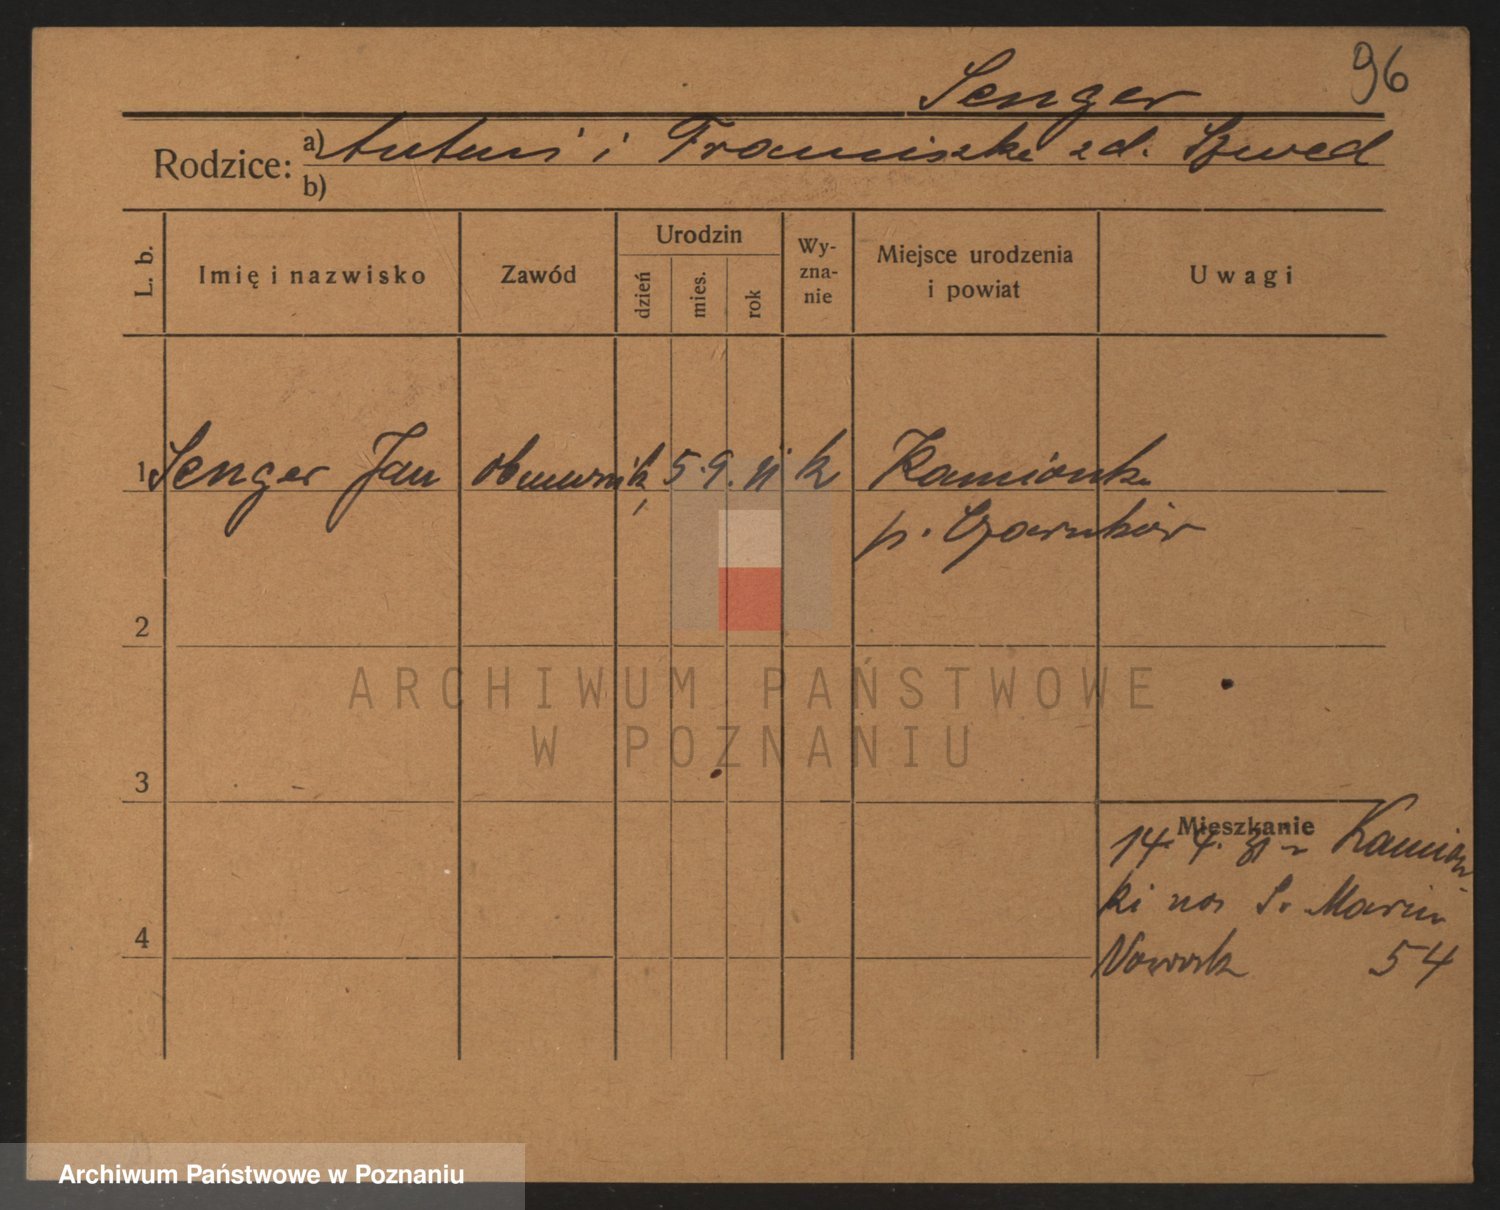 96
Senger
Rodzice: a) Antoni i Franciszka zd. Szwed
b)
L. b.
Imię i nazwisko
Zawód
Urodzin
dzień
mies.
rok
Wy-
zna-
nie
Miejsce urodzenia
i powiat
Uwagi
1 Senger Jan 5. 9. 11 k Kamionka
p. Czarnków
2
ARCHIWUM PAŃSTWOWE
W POZNANIU
3
Mieszkanie
14. 4. 31 z Kamion
ki na Św. Marcin
Nowak 54
4
Archiwum Państwowe w Poznaniu